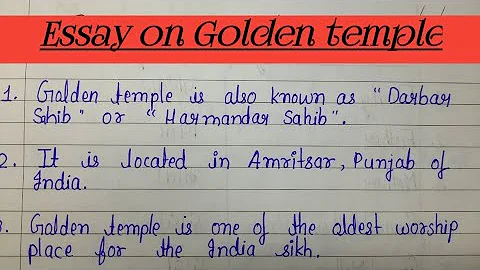 Essay on Golden temple
1. Golden temple is also known as “Darbar
Sahib” or “Harmandar Sahib”.
2. It is located in Amritsar, Punjab of
India.
3. Golden temple is one of the oldest worship
place for the India sikh.